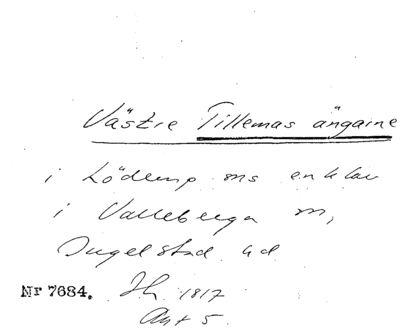 Västre Tillemas ängarne
i Löderup ms enklav
i Valleberga m,
Ingelstad hd
Nr 7684. Jh 1817
Akt 5